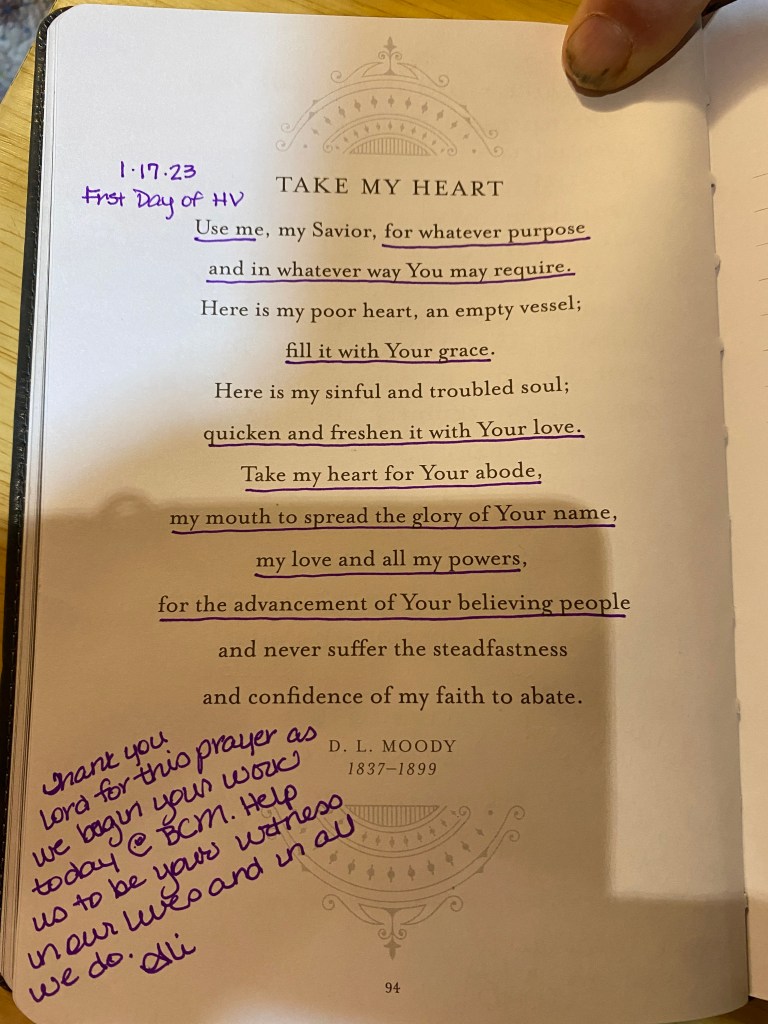 1.17.23
First Day of HV
TAKE MY HEART
Use me, my Savior, for whatever purpose
and in whatever way You may require.
Here is my poor heart, an empty vessel;
fill it with Your grace.
Here is my sinful and troubled soul;
quicken and freshen it with Your love.
Take my heart for Your abode,
my mouth to spread the glory of Your name,
my love and all my powers,
for the advancement of Your believing people
and never suffer the steadfastness
and confidence of my faith to abate.
D. L. MOODY
1837–1899
Thank you
Lord for this prayer as
we begin your work
today @ BCM. Help
us to be your witness
in our lives and in all
we do. Ali
94